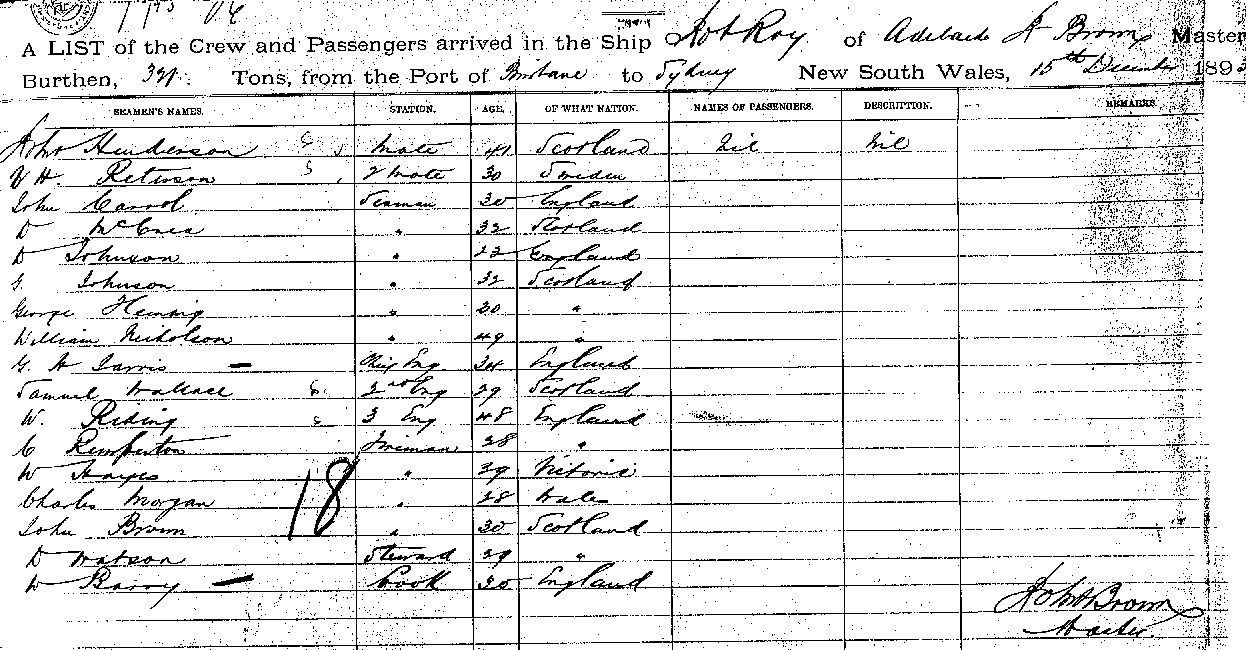 A LIST of the Crew and Passengers arrived in the Ship Rob Roy of Adelaide R Brown Master
Burthen, 321 Tons, from the Port of Brisbane to Sydney New South Wales, 15th December 189
SEAMEN'S NAMES. STATION. AGE, OF WHAT NATION. NAMES OF PASSENGERS. DESCRIPTION. REMARKS.
Henderson Mate 41 Scotland Nil Nil
H. Peterson 2 Mate 30 Sweden
John Carrol Seaman 30 England
D McCrea " 32 Scotland
D Johnson " 22 England
Johnson " 32 Scotland
George " 30 "
William Nicholson " 49 "
G. H Jarvis Eng 34 England
Samuel Wallace 2nd Eng 29 Scotland
W. Riding 3 Eng 48 England
C Pemberton Fireman 28 "
W Hayes " 39 Victoria
Charles Morgan " 28 Wales
18
John Brown " 30 Scotland
D Watson Steward 29 "
W Barry Cook 30 England
Brown
Master.